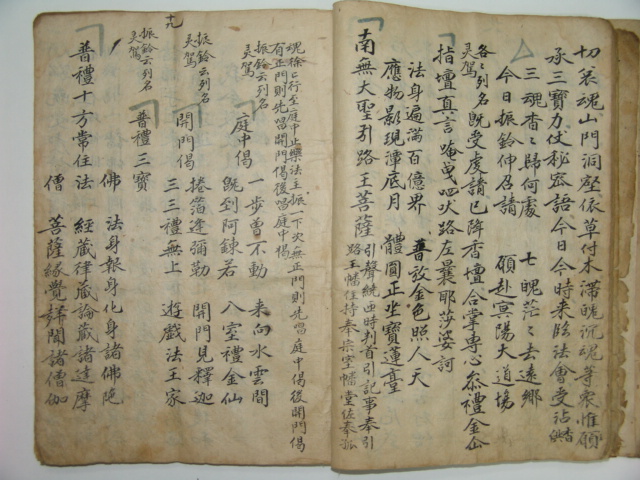 切哀魂山門洞壑依草付木滯魄沉魂等衆惟願
承三寶力仗秘密語今日今時來臨法會受沾香供
三魂杳杳歸何處 七魄茫茫去遠鄉
今日振鈴伸召請 願赴冥陽大道場
各各列名 旣受虔請已降香壇合掌專心叅禮金仙
灵駕
指壇真言 唵曳呬吠路左曩耶莎婆訶
法身遍滿百億界 普放金色照人天
應物影現潭底月 體圓正坐寶蓮臺
南無大聖引路王菩薩 引聲統三時判首引記事奉引
路王幡住持奉宗室幡堂佐奉振
魂徐徐行至庭中止樂法主振一下次無正門則先唱庭中偈後開門偈
有正門則先唱開門偈後唱庭中偈
振鈴云列名
灵駕
庭中偈 一步曾不動 來向水雲間
旣到阿鍊若 八室禮金仙
振鈴云列名
灵駕
開門偈 捲箔逢彌勒 開門見釋迦
三三禮無上 遊戱法王家
十九
振鈴云列名
灵駕
普禮三寶
普禮十方常住 佛 法身報身化身諸佛陁
法 經藏律藏論藏諸達摩
僧 菩薩緣覺聲聞諸僧伽